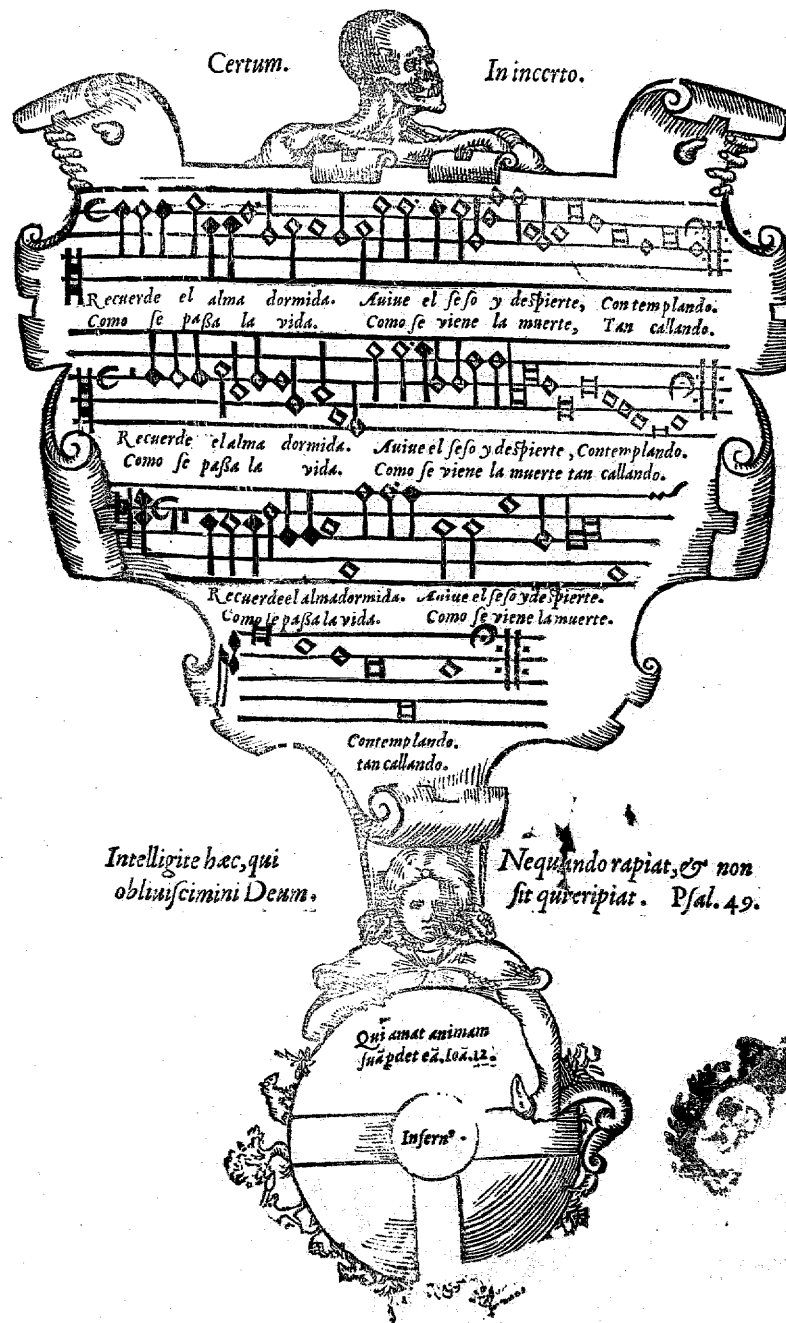 Certum. In incerto.
Recuerde el alma dormida. Auiue el seso y despierte, Contemplando.
Como se paßa la vida. Como se viene la muerte, Tan callando.
Recuerde el alma dormida. Auiue el seso y despierte, Contemplando.
Como se paßa la vida. Como se viene la muerte tan callando.
Recuerde el alma dormida. Auiue el seso y despierte.
Como se paßa la vida. Como se viene la muerte.
Contemplando.
tan callando.
Intelligite hæc, qui
obliuiscimini Deum.
Nequando rapiat, & non
sit qui eripiat. Psal. 49.
Qui amat animam
suā pdet eā. Ioā. 12.
Infernꝰ.